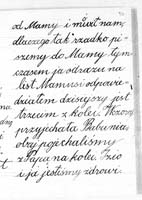 od Mamy i münt nam,
dlaczego tak rzadko pi-
szemy do Mamy tym-
czasem ja odrazu na
list Mamusi odpowie-
działem dzisiejszy jest
trzecim z kolei. Wczoraj
przyjechała Bubunia i
obaj pojechaliśmy
z Papą na kolej. Izio
i ja jesteśmy zdrowi.